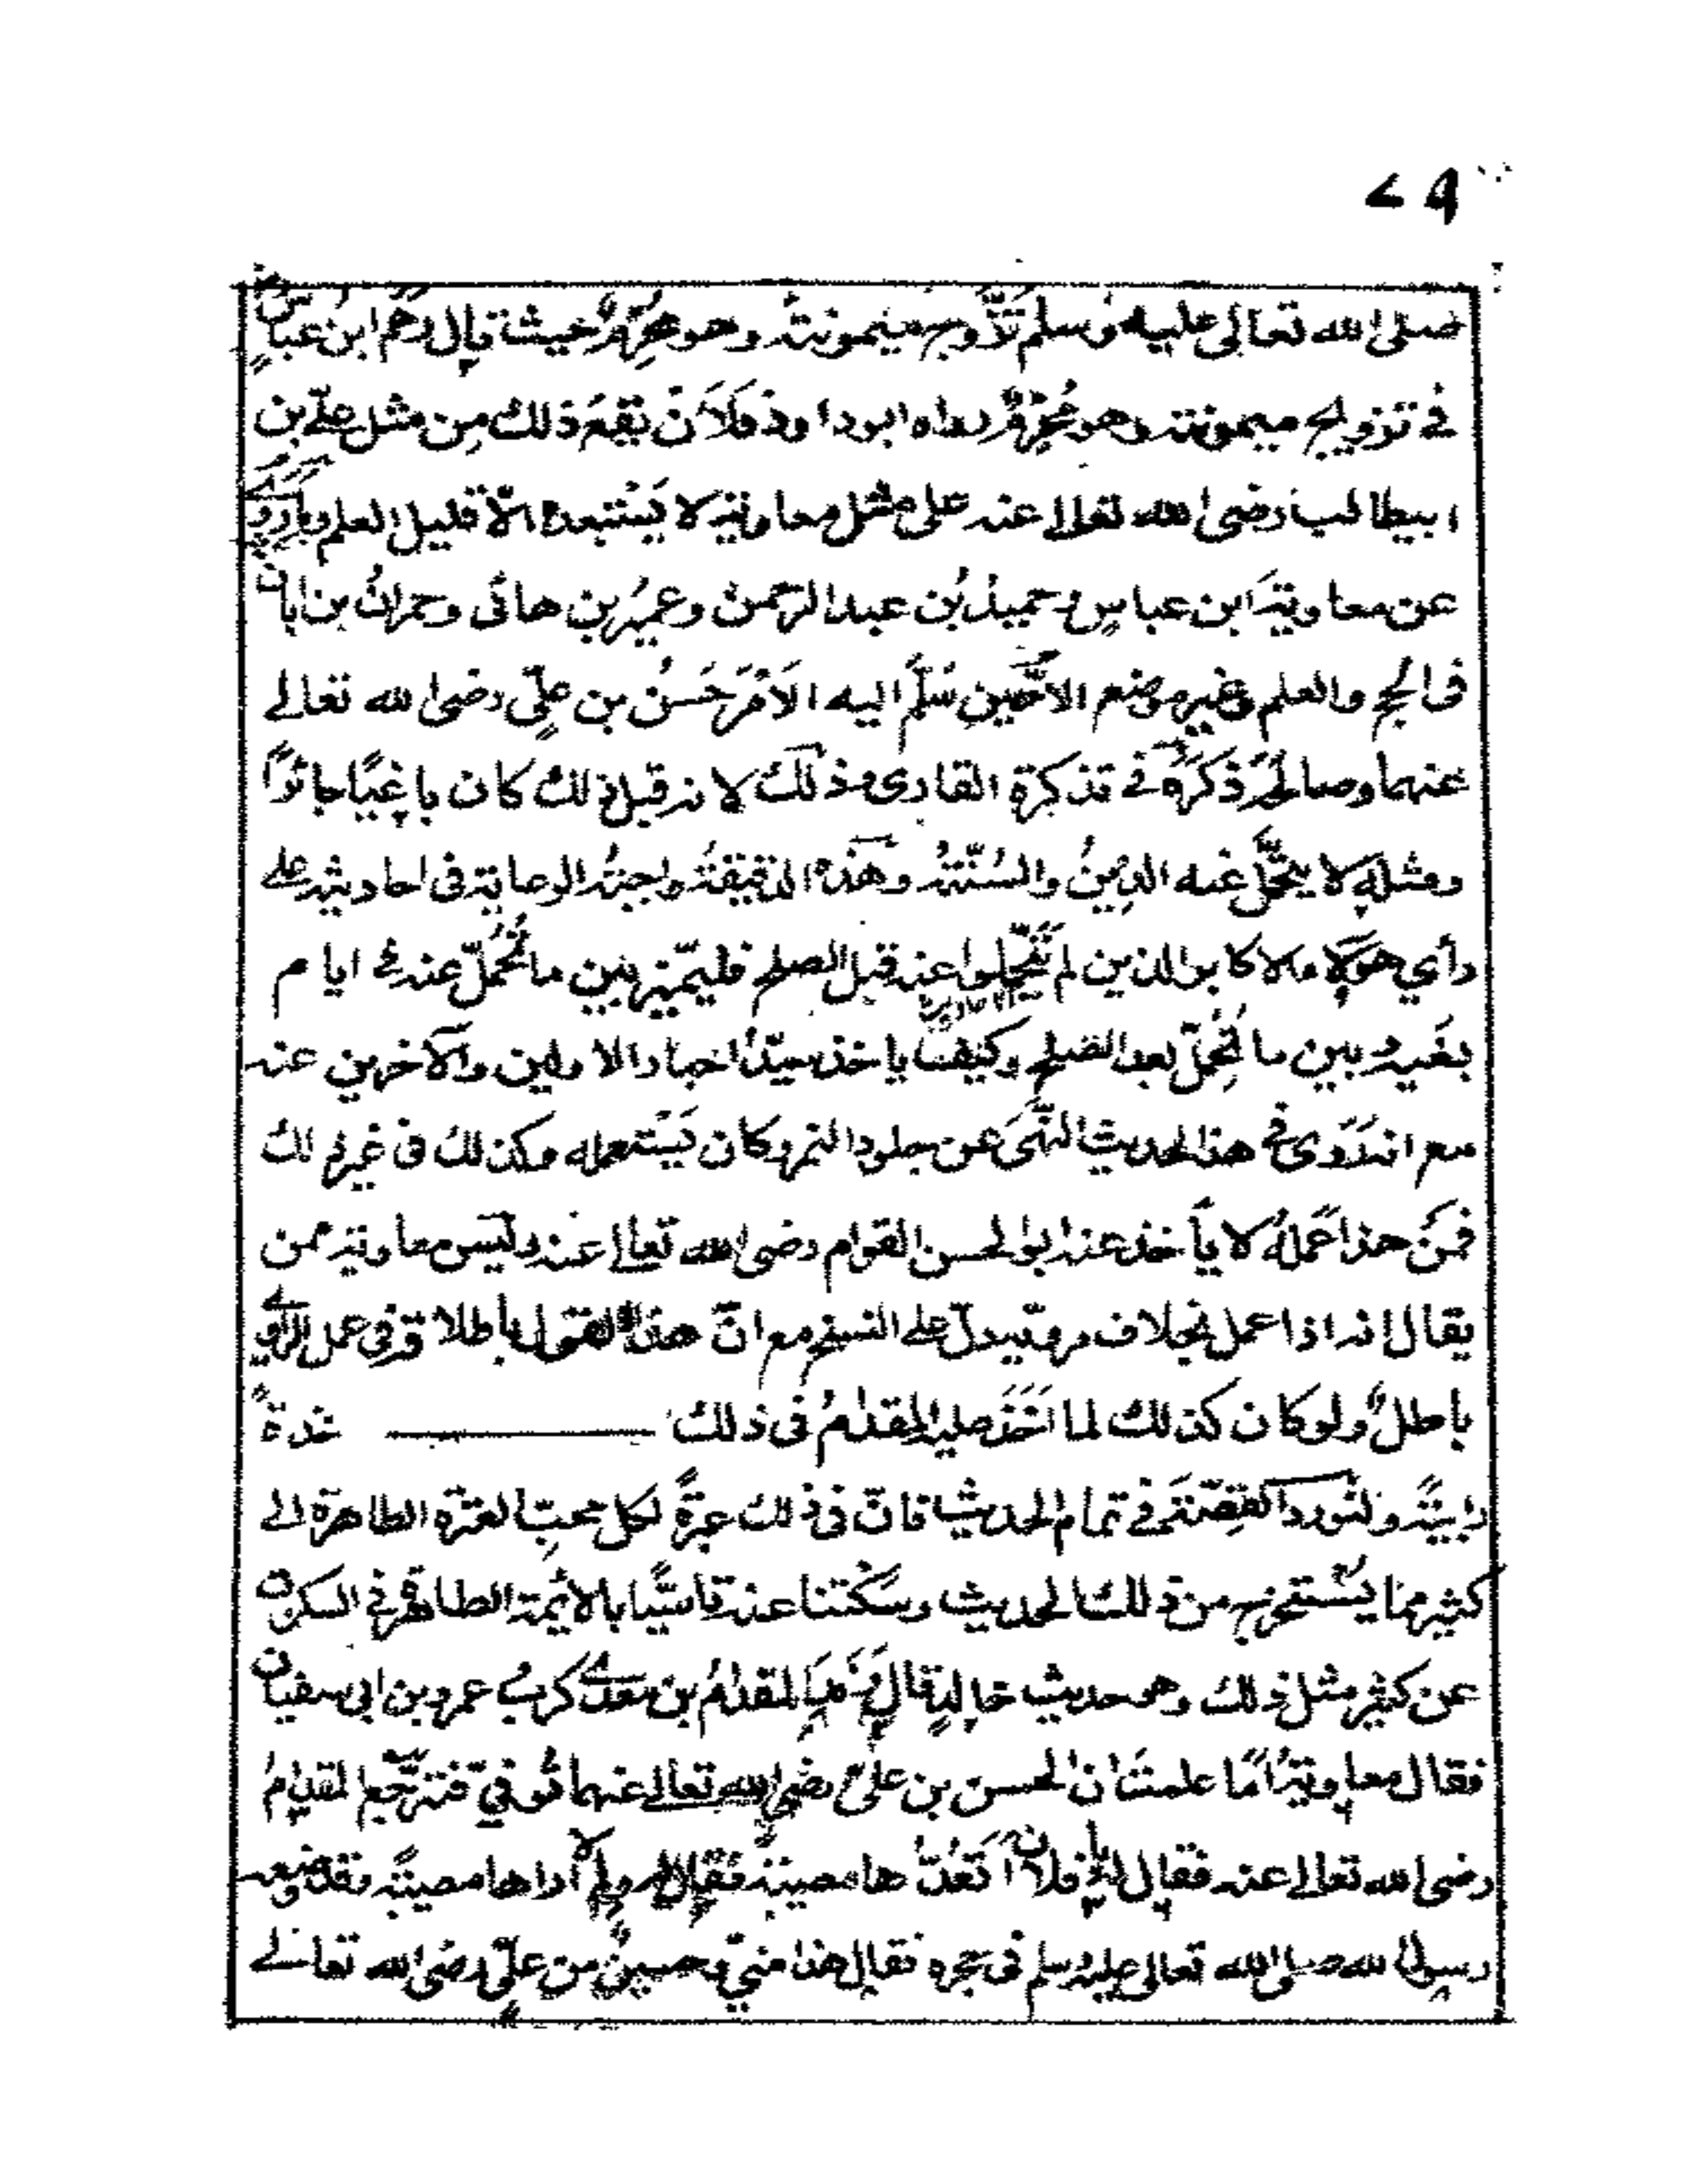 ٧٩
صلى الله تعالى عليه وسلم تزوج ميمونة وهو محرم حيث قال وَهَم ابن عباس
في تزويج ميمونة وهو مُحرِم رواه ابوداود فَلَاَنْ يقعَ ذلك مِن مثل علي بن
ابيطالب رضى الله تعالى عنه على مثل معاوية لا يَسْتبعده الّا قليل العلم
عن معاوية ابن عباس وحميد بُن عبد الرحمن وعمير بن هانى وحمرانُ بن ابان
فى الحج والعلم وغير موضع الا حين سَلَّم اليه الاَمْرَ حَسَنُ بن عليّ رضى الله تعالى
عنهما وصالحَ ذَكَرَه فى تذكرة القارى وذلك لانه قبل ذلك كان باغيًا جائرًا
ومثله لا يتحمّل عنه الدِينُ والسُنّةُ وهذه الدقيقة واجبةُ الرعاية فى احاديثه على
رأي هؤلاء الاكابر الذين لم يتحمّلوا عنه قبل الصلح فليتميّز بين ما تُحُمّل عنه فى ايام
بغيه وبين ما تُحُمِّل بعد الصلح وكيف ياخذ سيّدُ احبار الاولين والآخرين عنه
مع انه رَوى فى هذا الحديث النَّهىَ عن جلود النمر وكان يَسْتعمله وكذلك فى غير ذلك
فمَن هذا عَمَلُه لا يأخذ عنه ابو الحسن القوام رضى الله تعالى عنه وليس معاوية ممن
يقال انه اذا عمل بخلاف مرويّه يدلّ على النسخ مع انّ هذا القول باطلا فى عمل الراوي
باطلٌ ولو كان كذلك لما اَخَذَ عليه المقدامُ فى ذلك ــــــــ
رابيَةً ولنورد القصّة فى تمام الحديث فانّ فى ذلك عبرةً لكل محبّ العترة الطاهرة الى
كثير مما يُستخرج من ذلك الحديث وسَكْتنا عنه تاسّيًا بالائمة الطاهرة فى السكوت
عن كثير مثل ذلك وهو حديث خالد قال وَفَدَ المقدامُ بن معدي كرب عمرو بن ابى سفيان
فقال معاوية اَمَا علمتَ ان الحسن بن عليّ رضى الله تعالى عنهما تُوفيّ فترجّع المقدامُ
رضى الله تعالى عنه فقال له يا فلان اَتَعُدُّ ها مصيبة فقال له ولم لا اراها مصيبة وقد وضعه
رسول الله صلى الله تعالى عليه وسلم فى حجره فقال هذا منيّ وحسينٌ من عليّ رضى الله تعالى